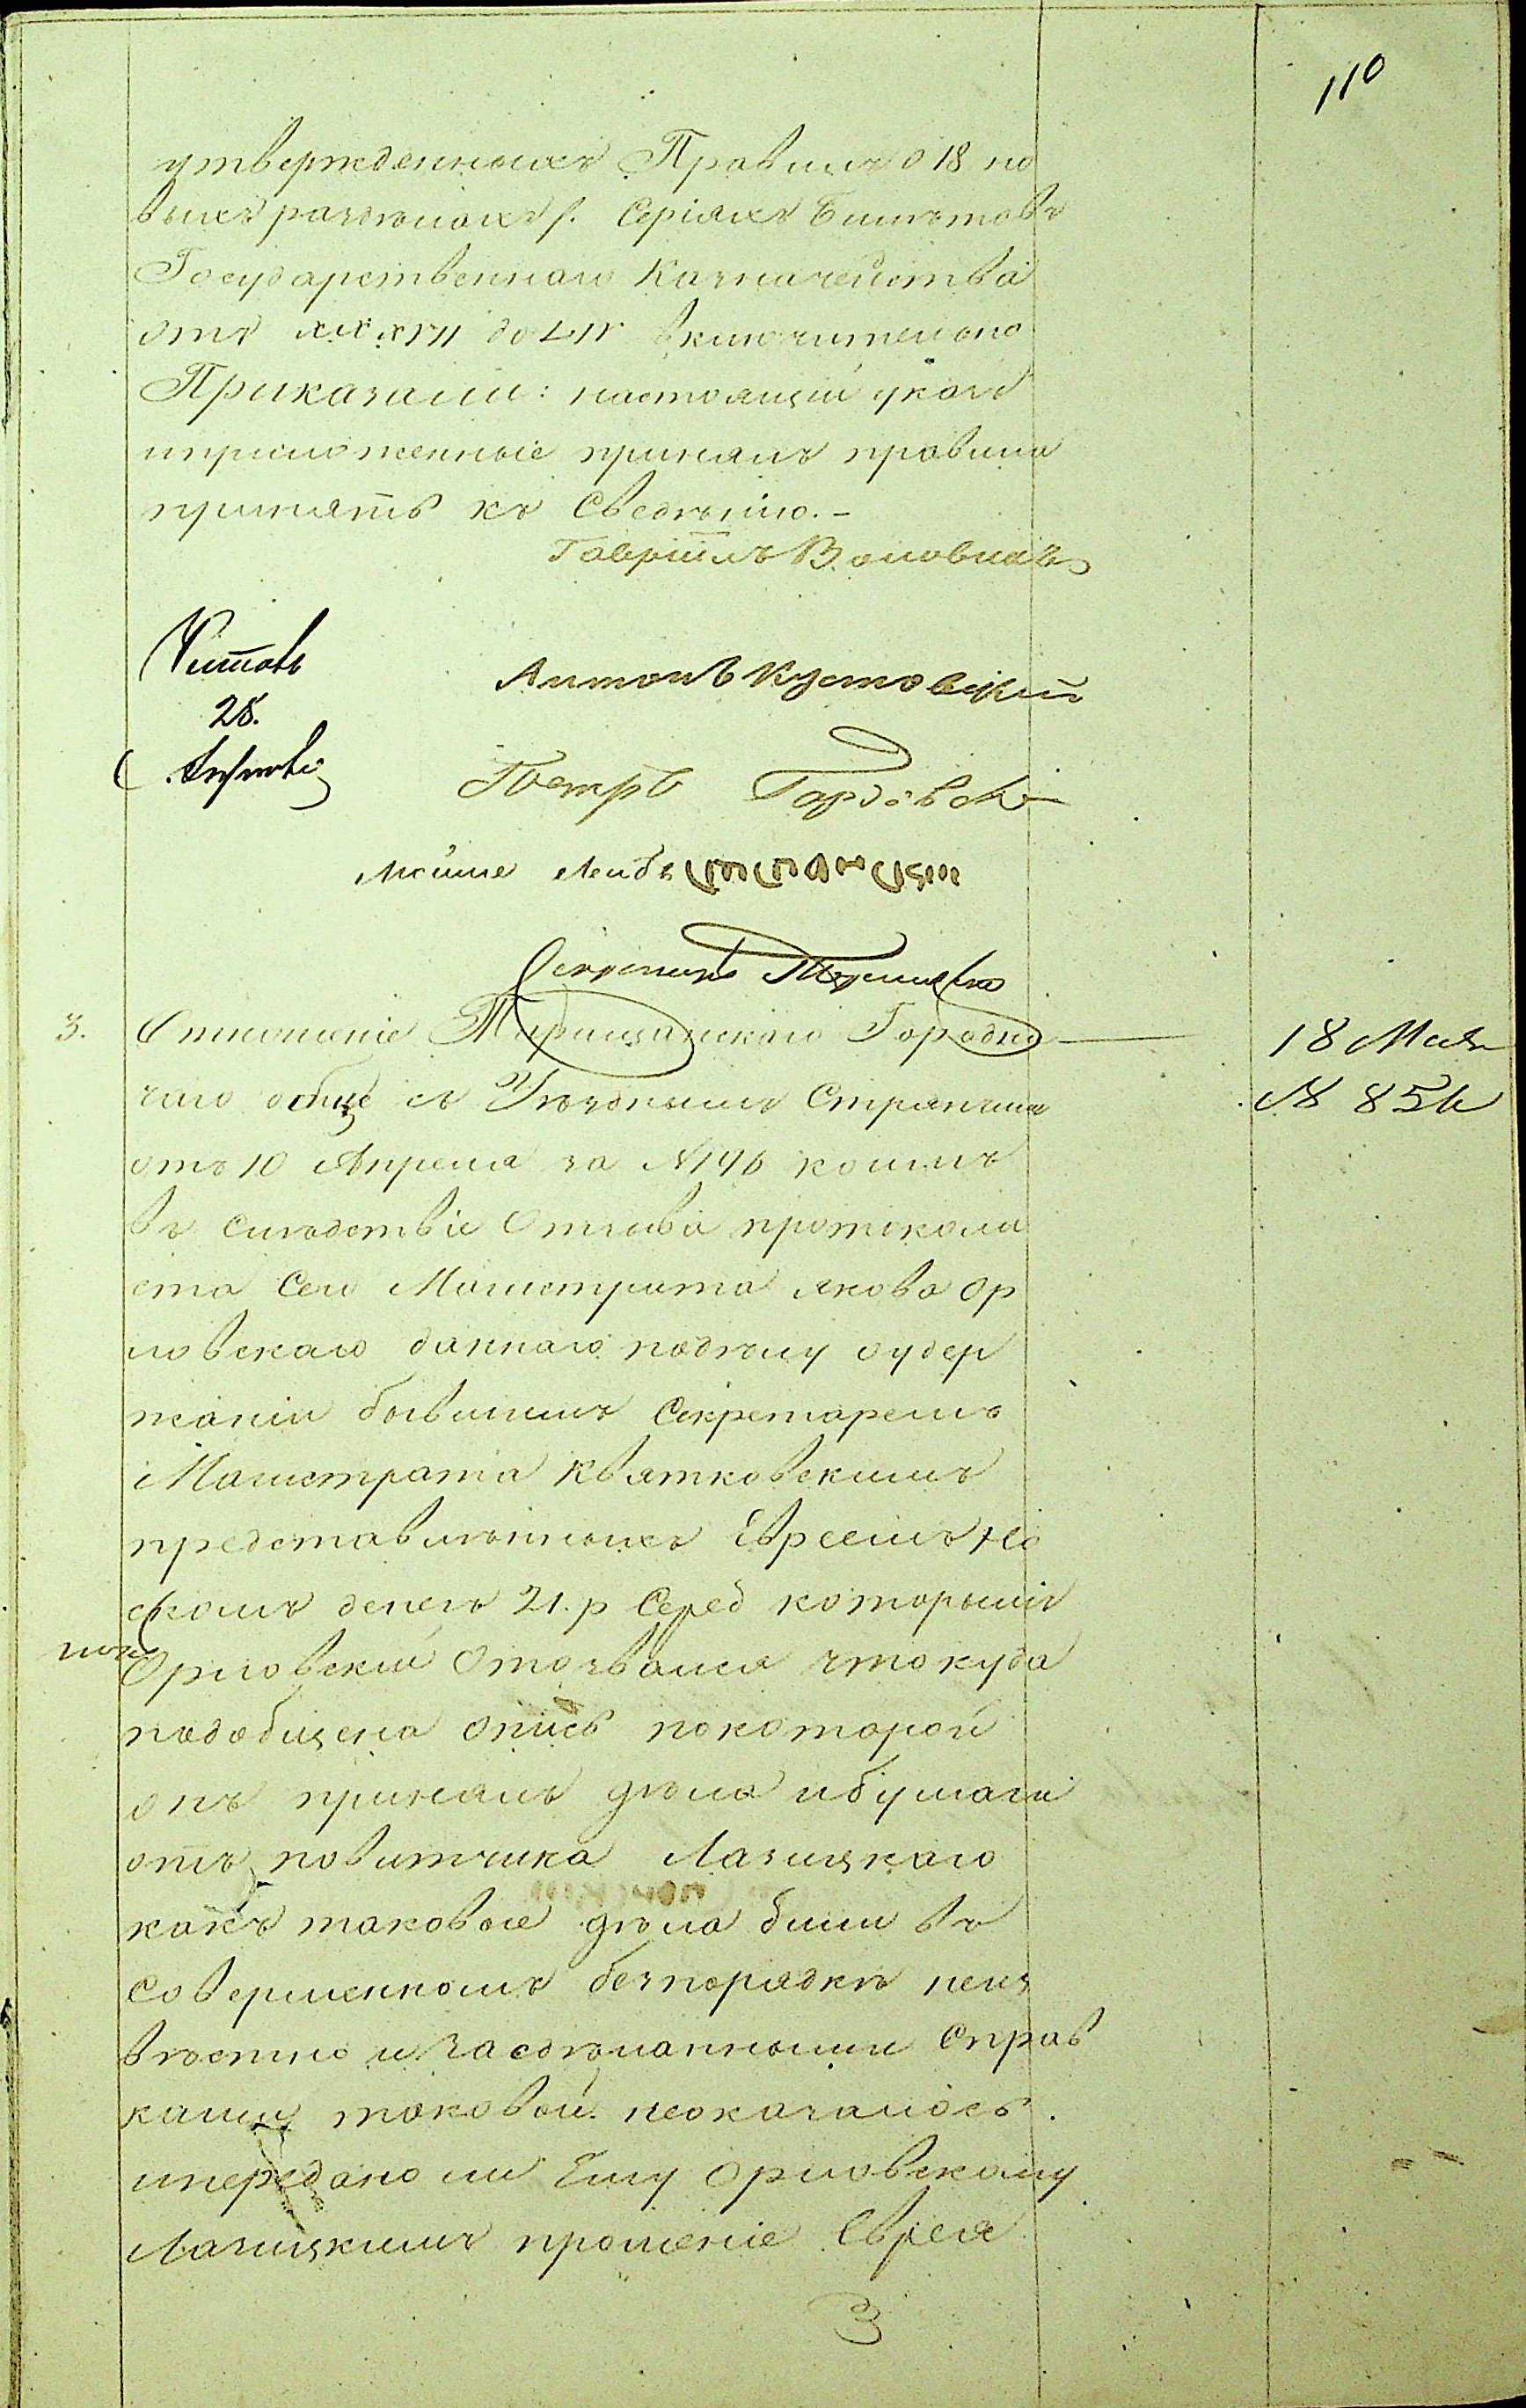 110
утвержденныхъ Правилъ о 18 но
выхъ разрядахъ. Серіяхъ Билѣтовъ
Государственнаго Казначейства
отъ XXXVII до LIV включительно
Приказали: настоящій указъ
и приложенные принемъ правила
принять къ Сведѣнію. –
Гавріилъ
Читалъ
28.
Антонъ Кустовскій
Петръ
Мойше Лейбъ
Секретарь
3. Отношеніе Таращанскаго Городни
чаго обще съ Уѣзднымъ Стряпчимъ
отъ 10 Апреля за № 146 коимъ
въ Слѣдствіе Отзыва протоколи
ста Сего Магистрата Якова Ор
ловскаго даннаго подѣлу о удер
жаніи бывшимъ Секретаремъ
Магистрата Квятковскимъ
представлѣнныхъ Евреемъ Но
скомъ денегъ 21. р Сереб которымъ
Орловскій Отозвался что куда
подобщена опись покоторой
онъ принялъ дѣла и бумаги
отъ повитчика Лазицкаго
какъ таковые дѣла были въ
Совершенномъ безпорядкѣ неиз
вѣстно и засдѣланными Справ
ками таковой неоказалось.
и передано ли Ему Орловскому
Лазицкимъ прошеніе Еврея
18 Мая
№ 854